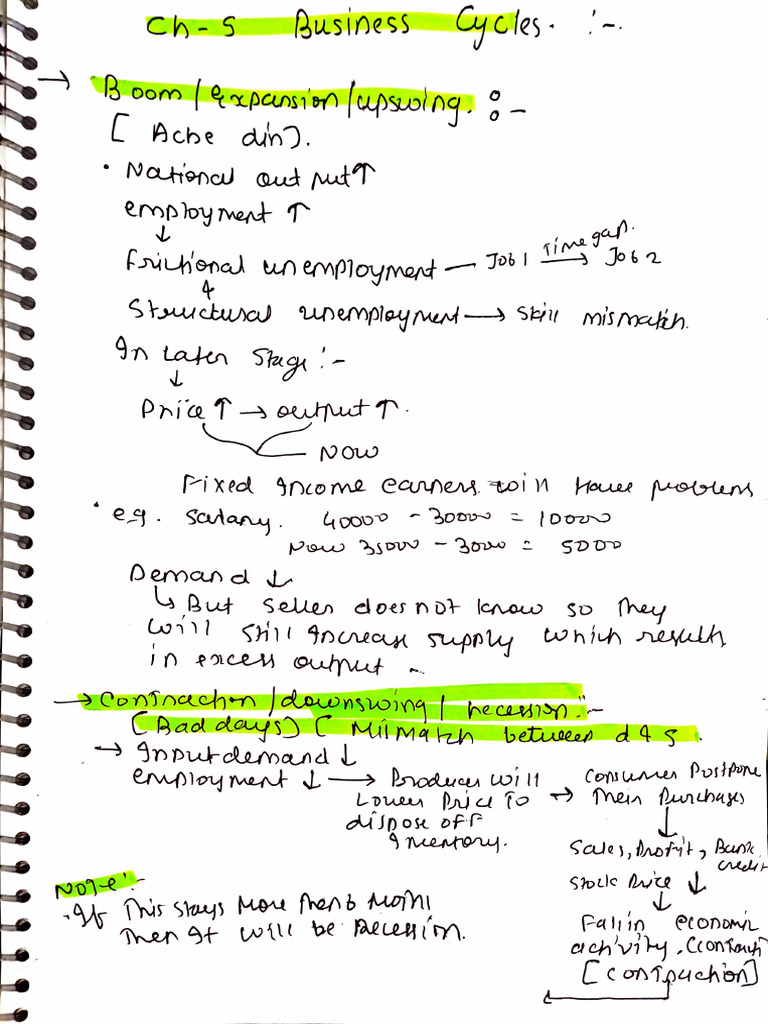 Ch-5 Business Cycles. :-
→ Boom/expansion/upswing :-
[Ache din].
• National output ↑
employment ↑
↓
Frictional unemployment — Job 1 Time gap. → Job 2
&
Structural unemployment → skill mismatch.
In Later Stage :-
↓
Price ↑ → output ↑.
Now
Fixed Income earners will have problems
• e.g. Salary. 40000 - 30000 = 10000
Now 35000 - 3000 = 5000
Demand ↓
↳ But seller does not know so they
will still increase supply which results
in excess output
→ Contraction/downswing/recession :-
[Bad days] [Mismatch between d & s.
→ Input demand ↓
employment ↓ → Producer will
Lower Price To
dispose off
Inventory.
→ Consumer Postpone
Their Purchases
↓
Sales, Profit, Bank
credit
Stock Price ↓
↓
Fall in economic
activity. (Contract
[Contraction]
Note :-
• If This stays More Then 6 Month
Then It will be Recession.